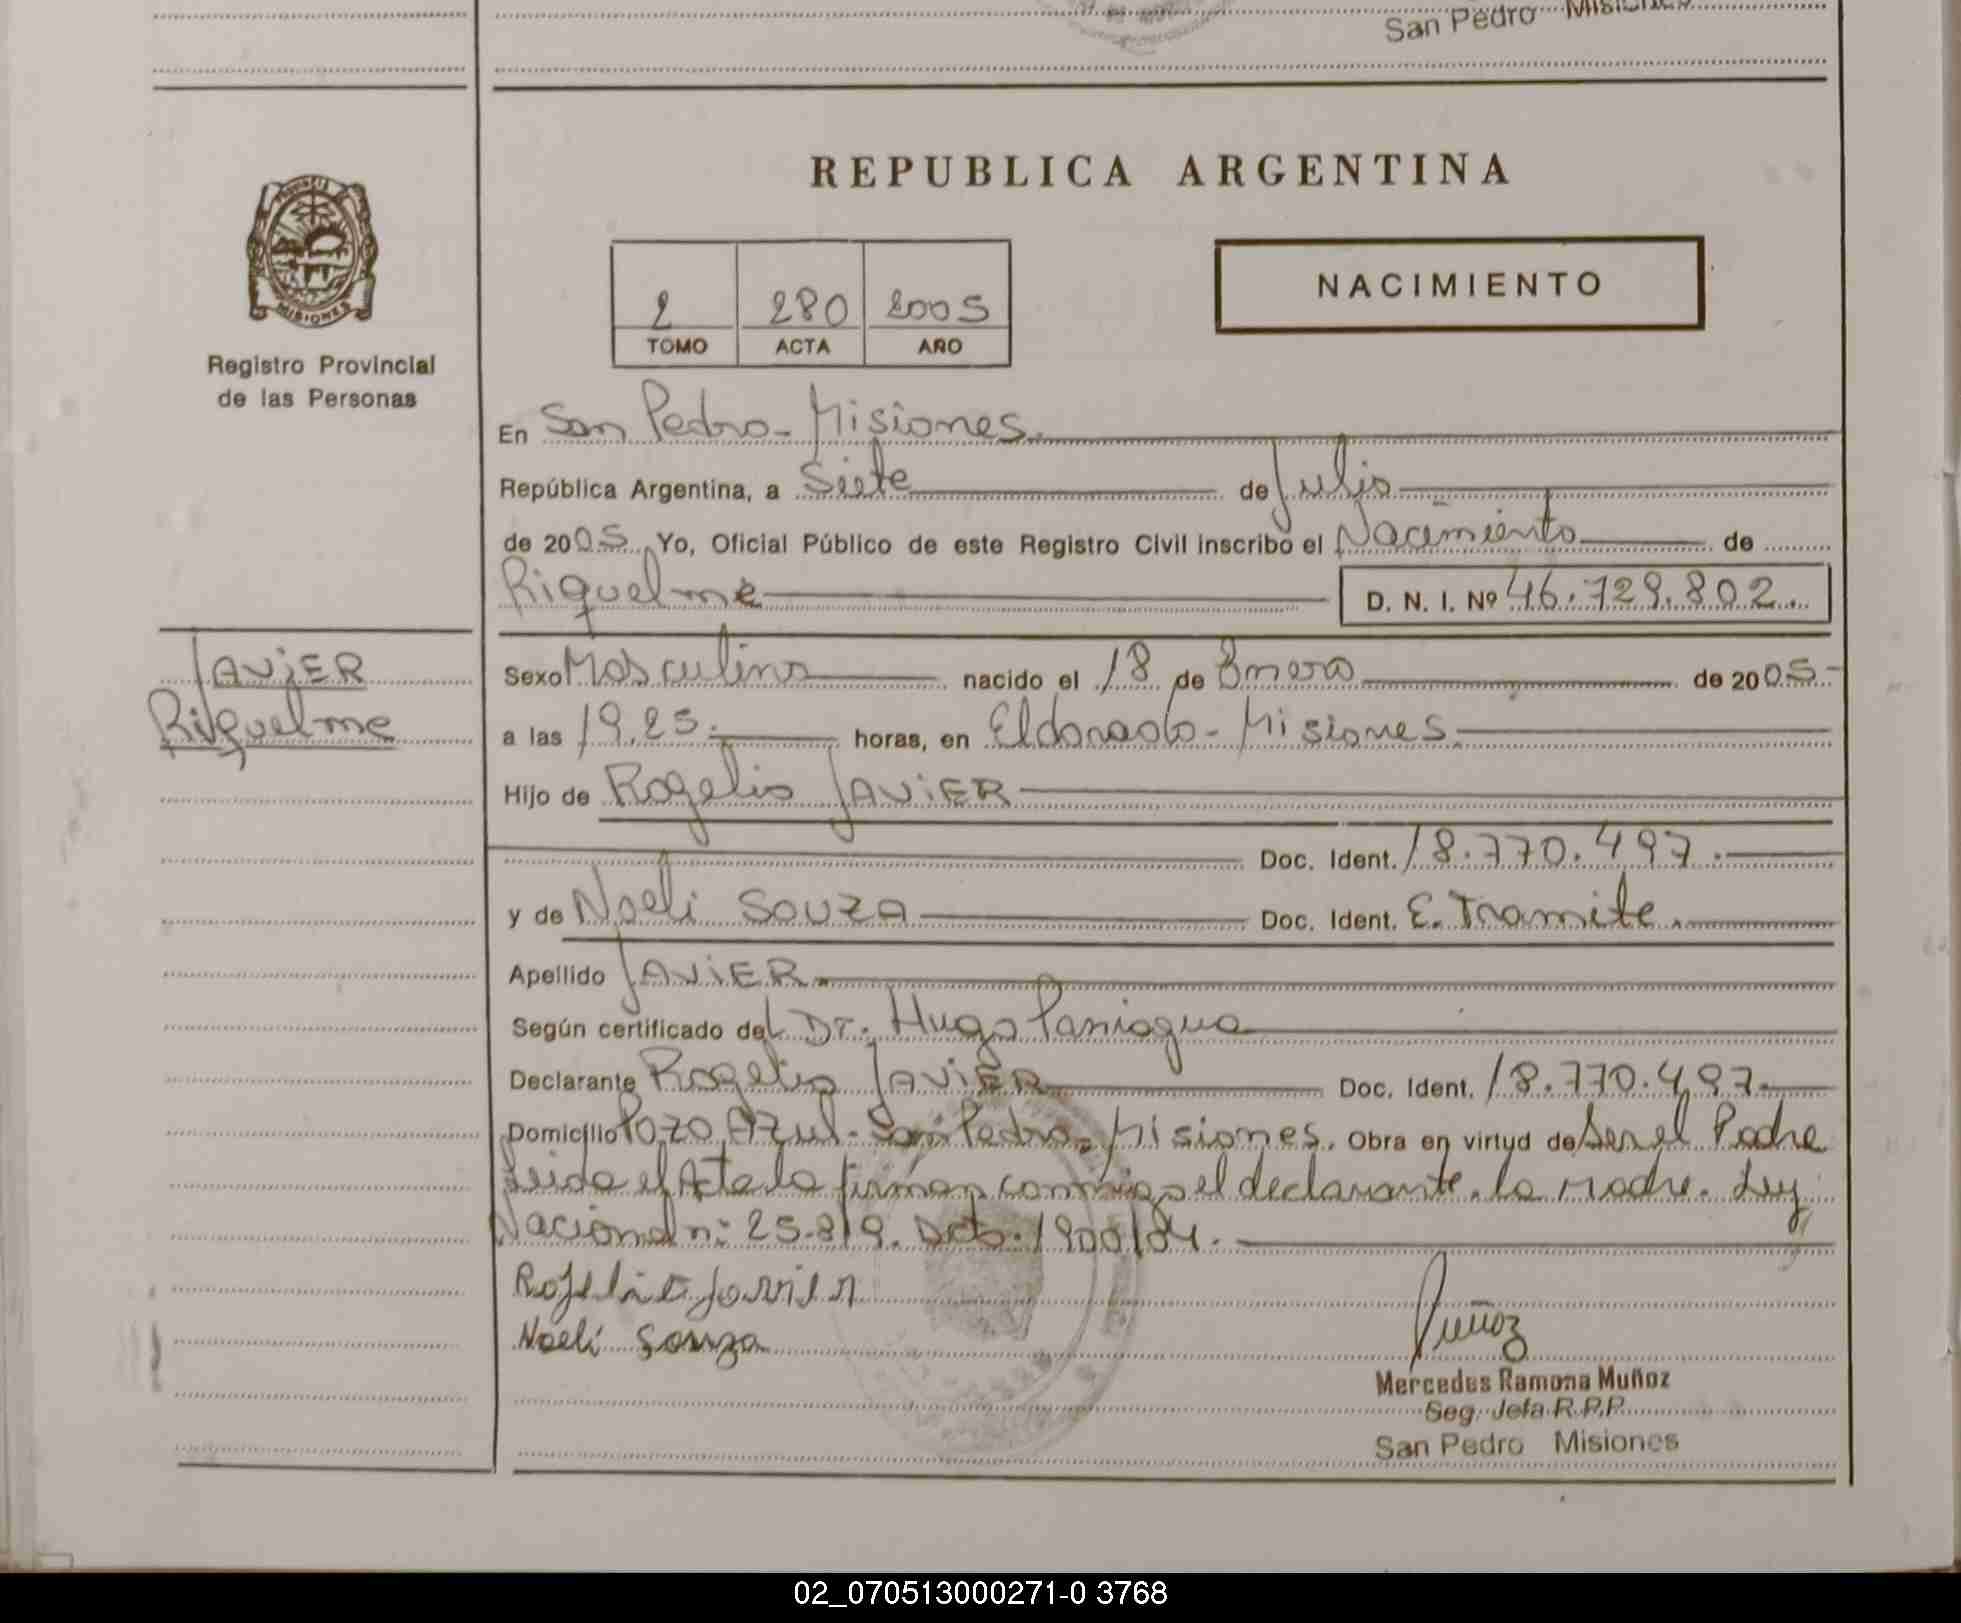 San Pedro Misiones
REPUBLICA ARGENTINA
PROVINCIA
MISIONES
Registro Provincial
de las Personas
2 280 2005
TOMO ACTA AÑO
NACIMIENTO
En San Pedro - Misiones.
República Argentina, a Siete de Julio
de 2005 Yo, Oficial Público de este Registro Civil inscribo el Nacimiento de
Riquelme D. N. I. Nº 46.729.802.
JAViER
Riquelme
Sexo Masculino nacido el 18 de Enero de 2005-
a las 19.25. horas, en Eldorado - Misiones.
Hijo de Rogelio JAViER
Doc. Ident. 18.770.497.
y de Noeli SOUZA Doc. Ident. E. Tramite.
Apellido JAViER
Según certificado del Dr. Hugo Paniagua
Declarante Rogelio JAViER Doc. Ident. 18.770.497.
Domicilio Pozo Azul - San Pedro - Misiones. Obra en virtud de Ser el Padre
Leida el Acta la firman conmigo el declarante. la Madre. Ley
Nacional n: 25.819. Dcto. 1900/04.
Rojelio Javier
Noeli Souza
Muñoz
Mercedes Ramona Muñoz
Seg. Jefa R.P.P.
San Pedro Misiones
02_070513000271-0 3768